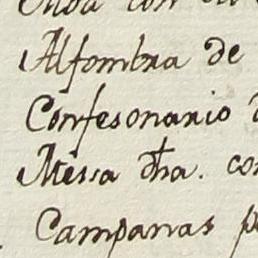 con
Alfombra de
Confesonario
Messa dha. con
Campanas